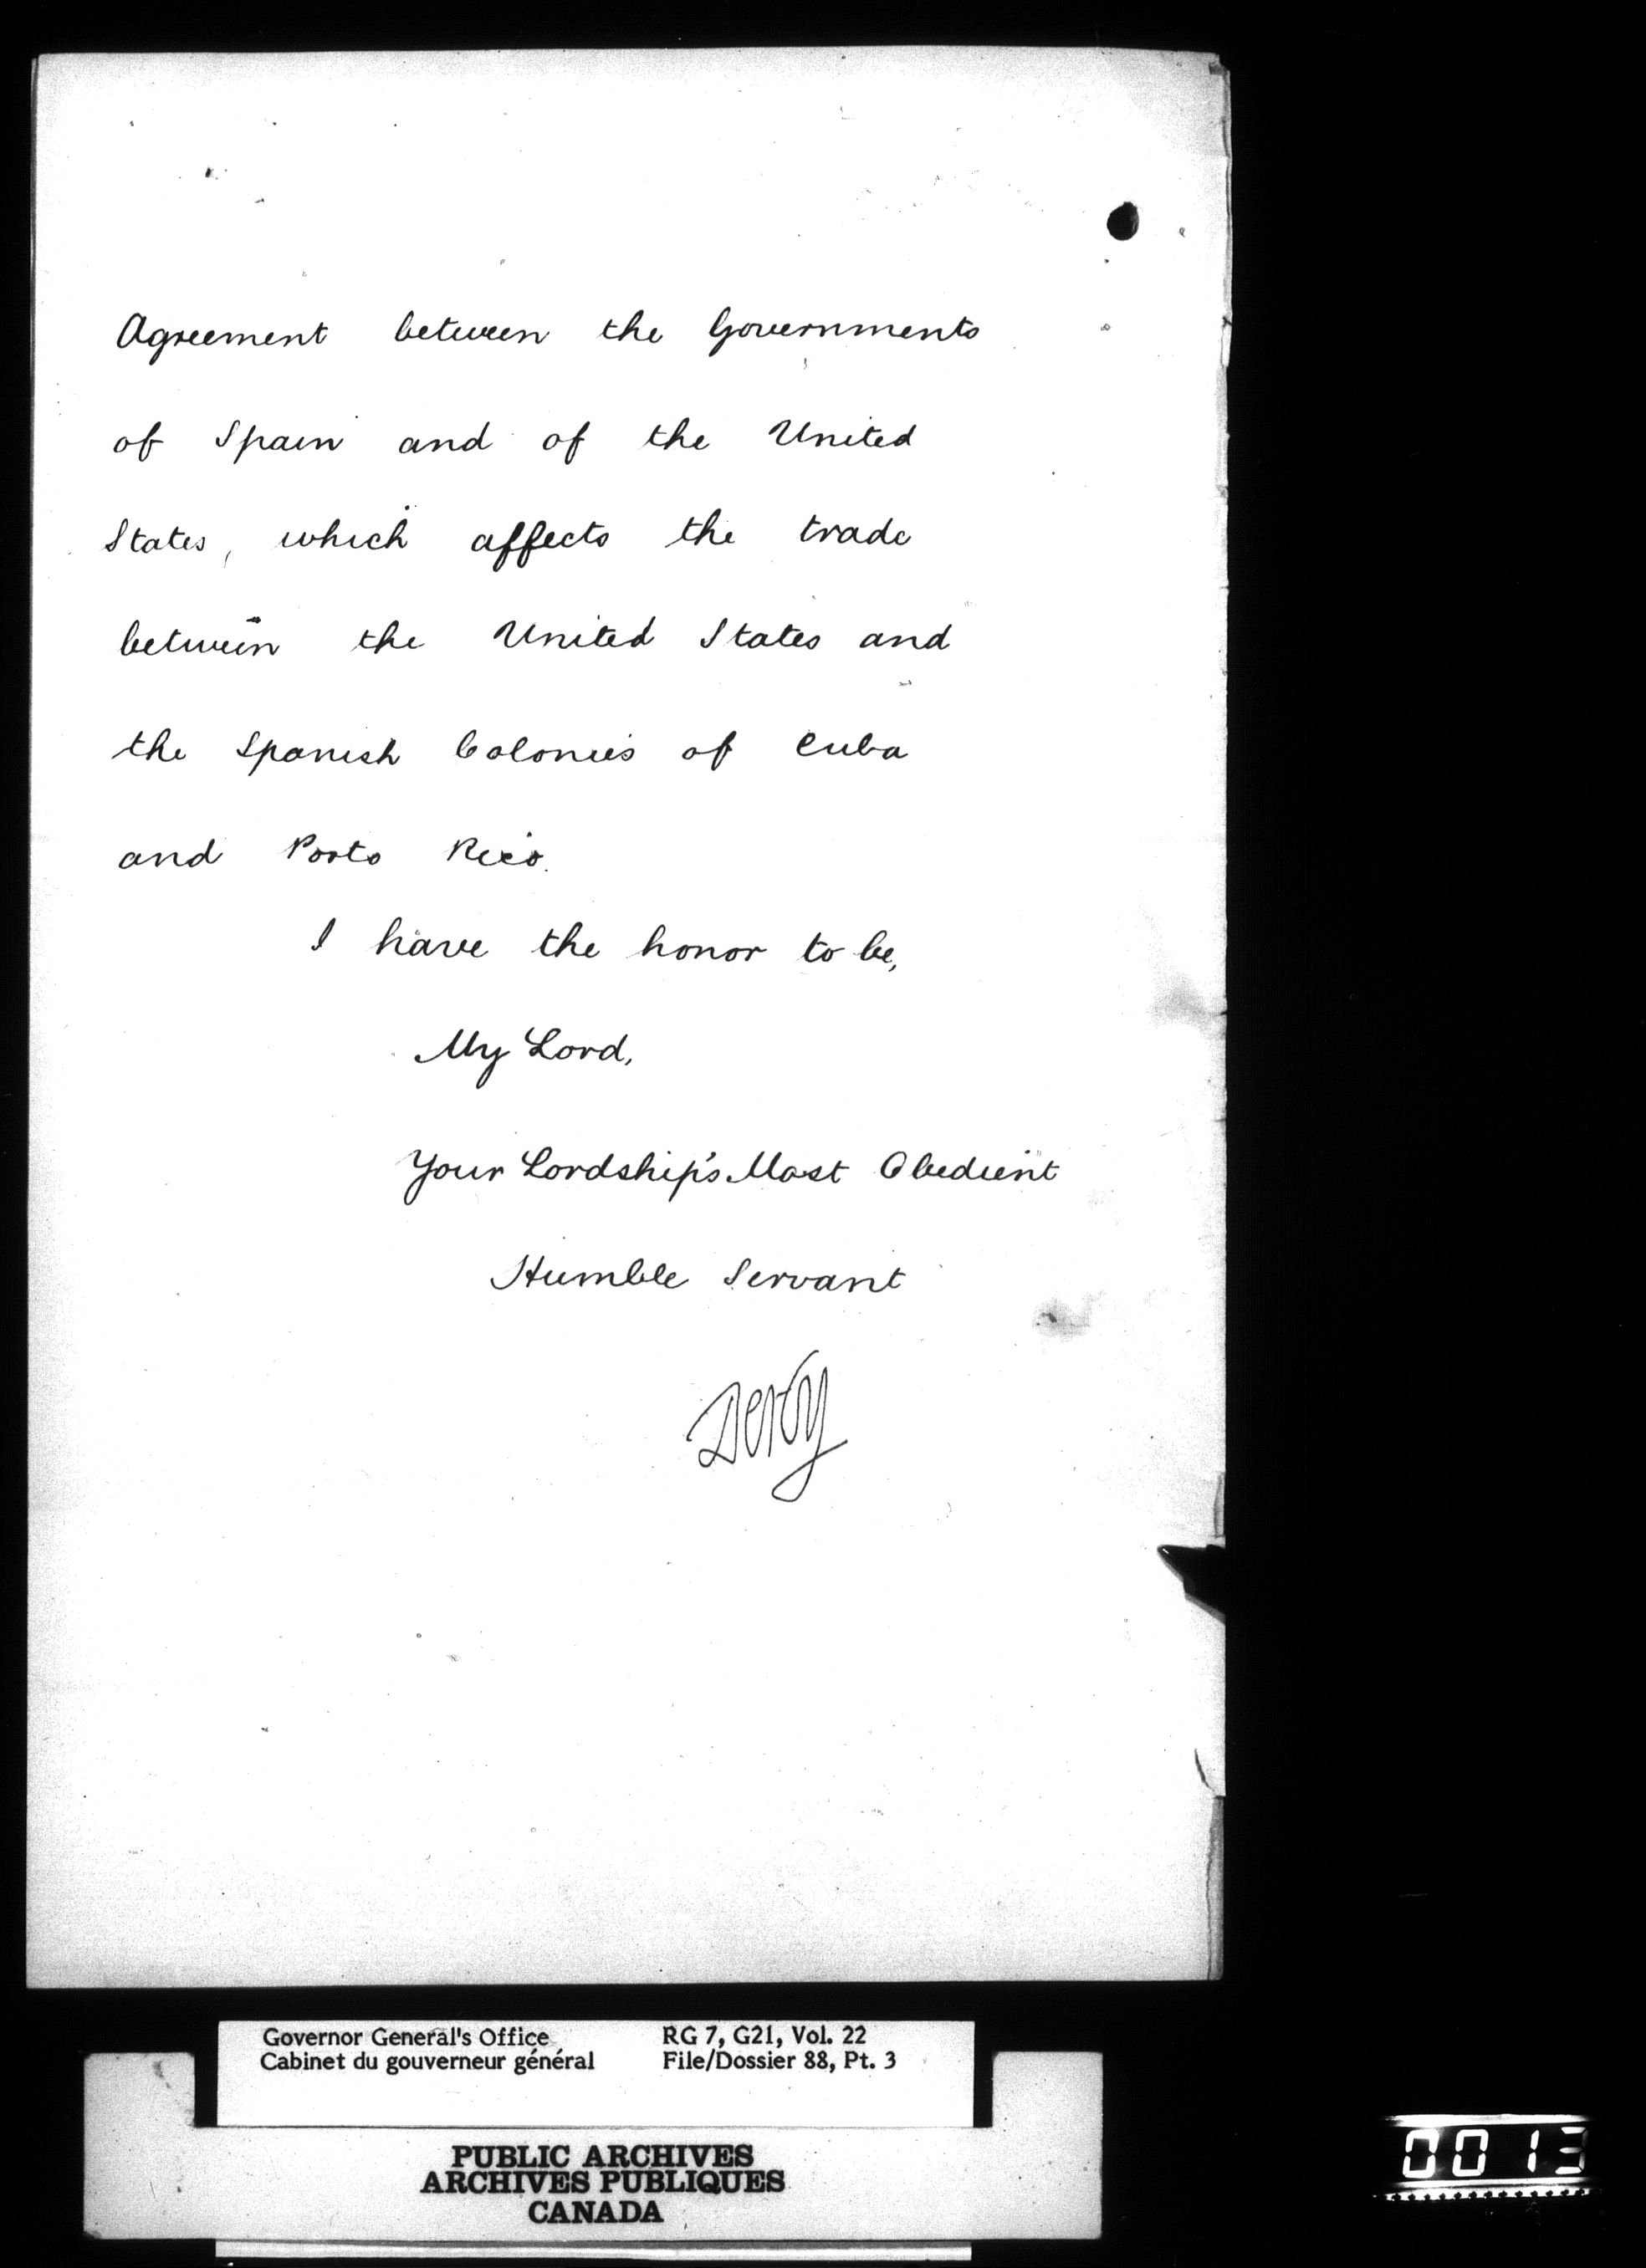 Agreement between the Governments
of Spain and of the United
States, which affects the trade
between the United States and
the Spanish Colonies of Cuba
and Porto Rico.
I have the honor to be,
My Lord,
Your Lordship's Most Obedient
Humble Servant
Derby
Governor General's Office RG 7, G21, Vol. 22
Cabinet du gouverneur général File/Dossier 88, Pt. 3
PUBLIC ARCHIVES
ARCHIVES PUBLIQUES
CANADA
0013